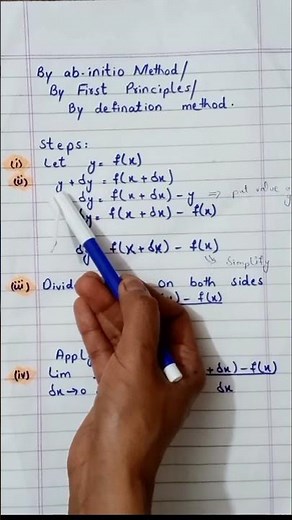 By ab-initio Method/
By First Principles/
By defination method.
Steps:
(i) Let y = f(x)
(ii) y + δy = f(x + δx)
δy = f(x + δx) - y ⇒ put value
δy = f(x + δx) - f(x)
δy = f(x + δx) - f(x)
Simplify
(iii) Divid on both sides
- f(x)
Apply
(iv) Lim + δx) - f(x)
δx→0 δx